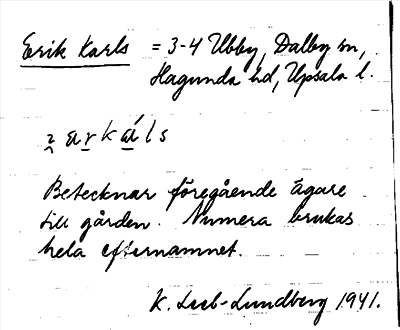 Erik Karls = 3-4 Ubby, Dalby sn,
Hagunda hd, Upsala l.
ar k a´ l s
Betecknar föregående ägare
till gården. Numera brukas
hela efternamnet.
K. Leeb-Lundberg 1941.